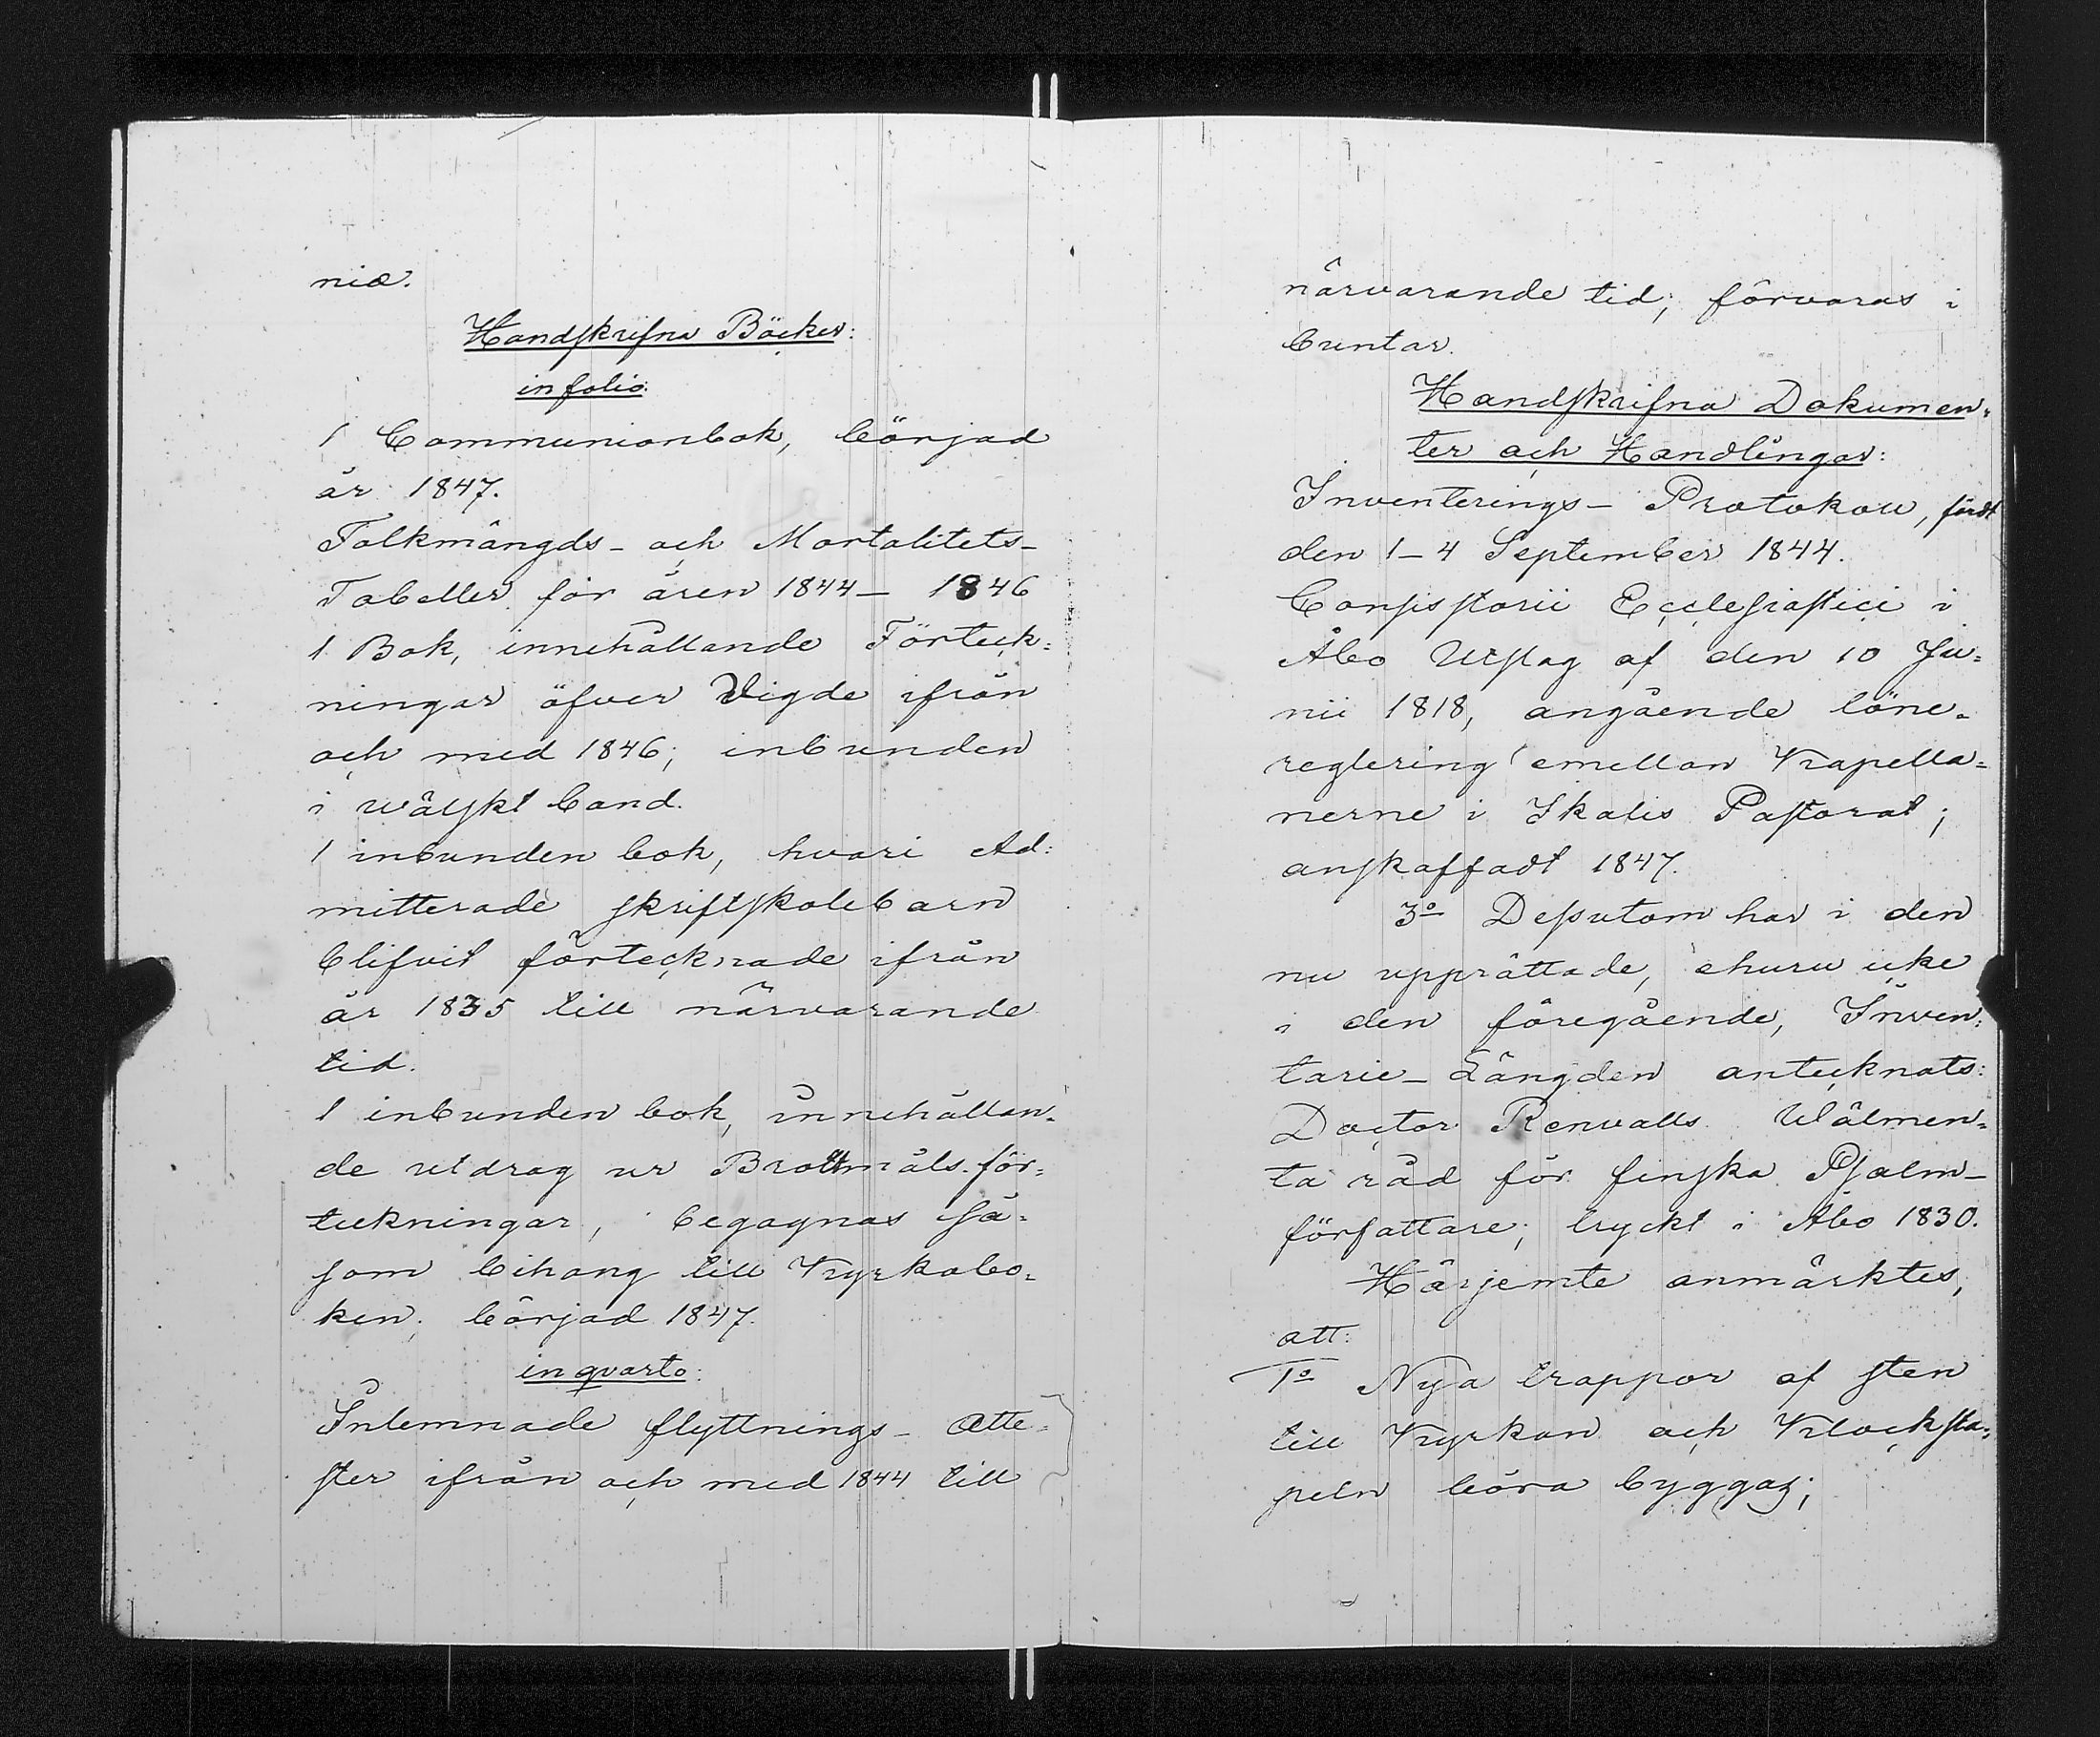 niæ.
Handskrifna Böcker:
in folio:
1 Communionbok, börjad
år 1847.
Folkmängds- och Mortalitets-
Tabeller för åren 1844- 1846
1 Bok, innehållande Förteck=
ningar öfver Vigde ifrån
och med 1846; inbunden
i wälskt band.
1 inbunden bok, hvari Ad=
mitterade skriftskolebarn
blifvit förtecknade ifrån
år 1835 till närvarande
tid.
1 inbunden bok, innehållan=
de utdrag ur Brottmåls-för=
teckningar, begagnas så=
som bihang till Kyrkobo=
ken; börjad 1847.
in qvarto:
Inlemnade flyttnings- Atte=
ster ifrån och med 1844 till
närvarande tid; förvaras i
buntar.
Handskrifna Dokumen=
ter och Handlingar:
Inventerings- Protokoll, fördt
den 1-4 September 1844.
Consistorii Ecclesiastici i
Åbo Utslag af den 10 Ju=
nii 1818, angående löne=
reglering emellan Kapella=
nerne i Ikalis Pastorat;
anskaffadt 1847.
3o Dessutom har i den
nu upprättade, ehuru icke
i den föregående, Inven=
tarie- Längden antecknats:
Doctor Renvalls Wälmen=
ta råd för finska Psalm-
författare; tryckt i Åbo 1830.
Härjemte anmärktes,
att:
1o Nya trappor af sten
till Kyrkan och Klocksta=
peln böra byggas;